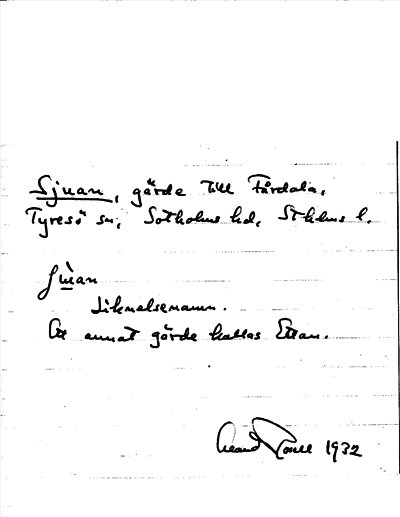 Sjuan, gärde till Fårdala,
Tyresö sn, Sotholms hd, Sthlms l.
Liknelsenamn.
Ett annat gärde kallas Ettan.
1932